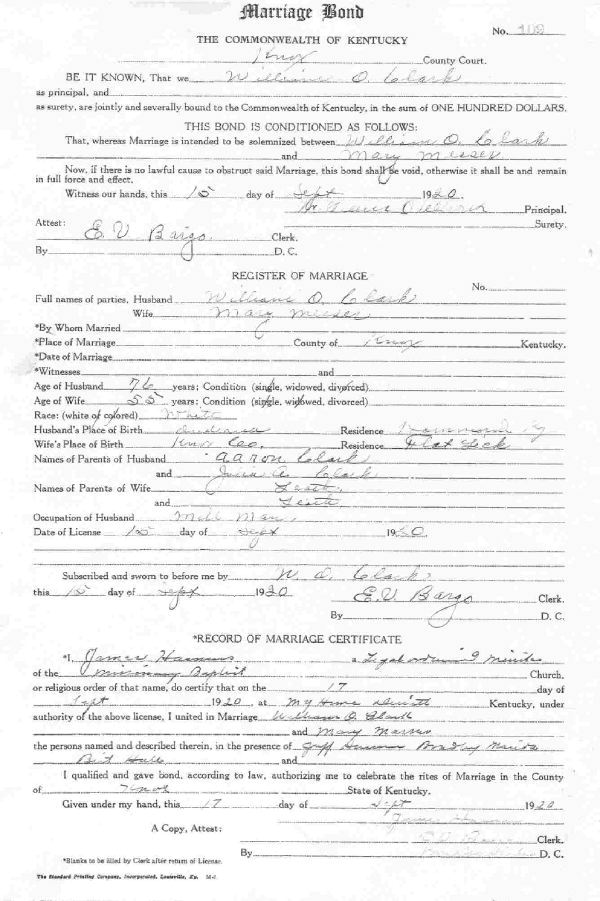 Marriage Bond
No. 109
THE COMMONWEALTH OF KENTUCKY
Knox County Court.
BE IT KNOWN, That we William O. Clark
as principal, and
as surety, are jointly and severally bound to the Commonwealth of Kentucky, in the sum of ONE HUNDRED DOLLARS.
THIS BOND IS CONDITIONED AS FOLLOWS:
That, whereas Marriage is intended to be solemnized between William O. Clark
and Mary Messer
Now, if there is no lawful cause to obstruct said Marriage, this bond shall be void, otherwise it shall be and remain
in full force and effect.
Witness our hands, this 15 day of Sept 1920.
Principal.
Attest: Surety.
E. V. Bargo. Clerk.
By D. C.
REGISTER OF MARRIAGE
No.
Full names of parties, Husband William O. Clark
Wife Mary Messer
*By Whom Married
*Place of Marriage County of Knox Kentucky.
*Date of Marriage
*Witnesses and
Age of Husband 76 years; Condition (single, widowed, divorced)
Age of Wife 55 years; Condition (single, widowed, divorced)
Race: (white or colored) White
Husband's Place of Birth Indiana Residence
Wife's Place of Birth Knox Co. Residence Flat Lick
Names of Parents of Husband Aaron Clark
and Julia A. Clark
Names of Parents of Wife
and
Occupation of Husband Mill Man.
Date of License 15 day of Sept 1920
Subscribed and sworn to before me by W. O. Clark
this 15 day of Sept 1920 E. V. Bargo Clerk.
By D. C.
*RECORD OF MARRIAGE CERTIFICATE
*I, James a Legal
of the Missionary Baptist Church.
or religious order of that name, do certify that on the 17 day of
Sept 1920, at My Home Kentucky, under
authority of the above license, I united in Marriage William O. Clark
and Mary
the persons named and described therein, in the presence of Bradley
and
I qualified and gave bond, according to law, authorizing me to celebrate the rites of Marriage in the County
of Knox State of Kentucky.
Given under my hand, this 17 day of Sept 1920
James
A Copy, Attest: Clerk.
By D. C.
*Blanks to be filled by Clerk after return of License.
The Standard Printing Company, Incorporated, Louisville, Ky.